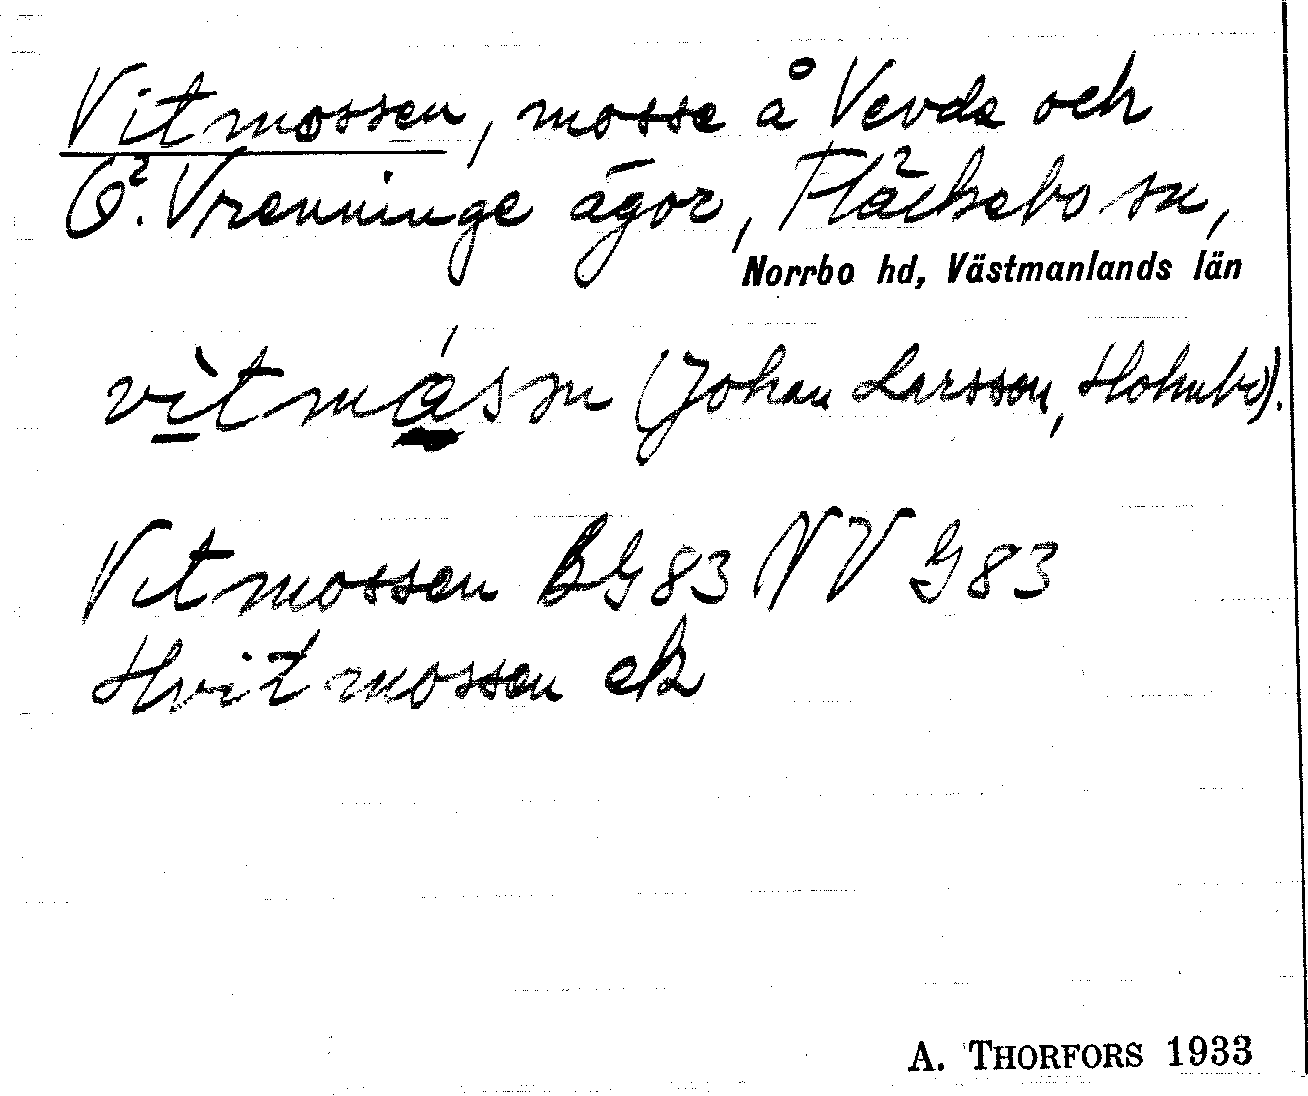 Vitmossen, mosse å Vevde och
Ö. Vrenninge ägor, Fläckebo sn,
Norrbo hd, Västmanlands län
vìtmásn (Johan Larsson, Holmbo).
Vitmossen BG83 NV G83
Hvitmossen ek
A. THORFORS 1933